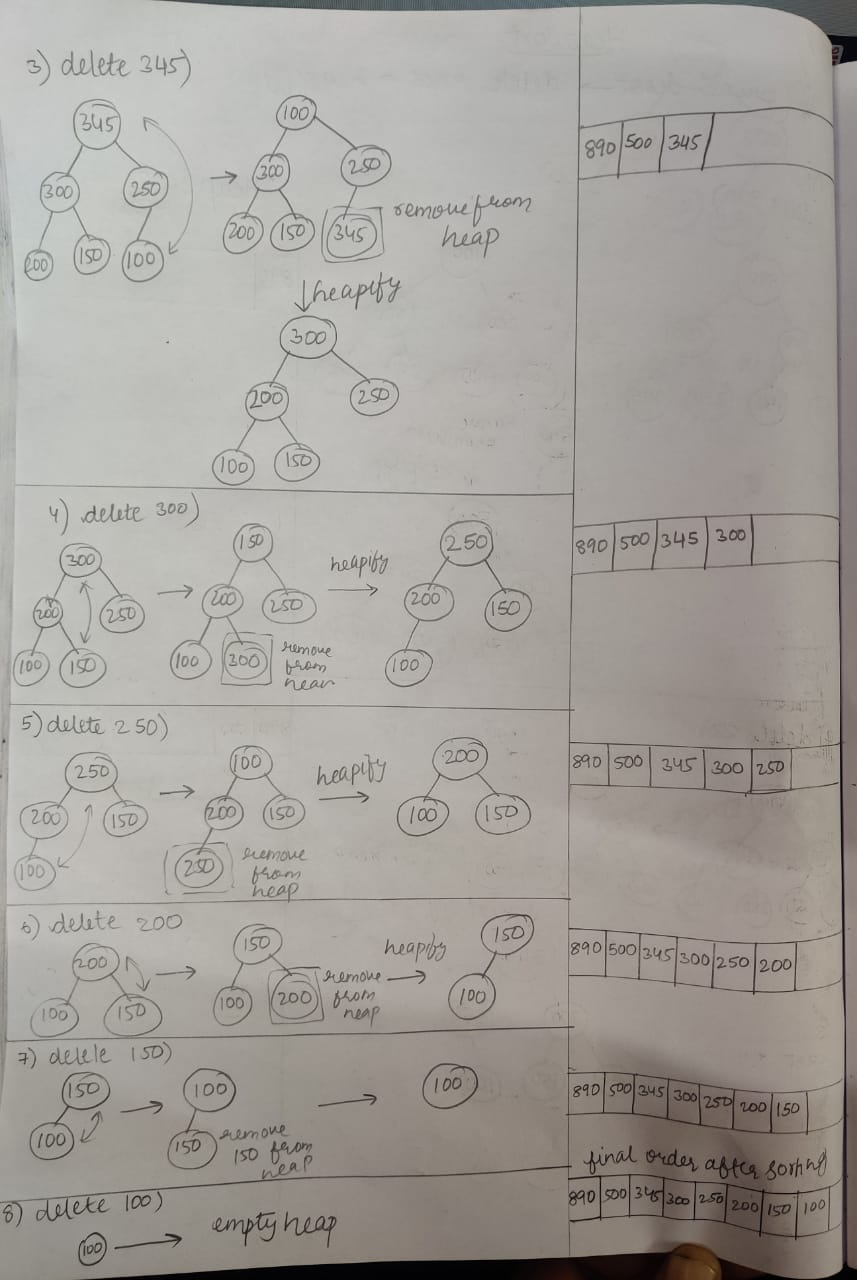 3) delete 345)
345
300 250
200 150 100
→
100
300 250
200 150 345
remove from
heap
↓heapify
300
200 250
100 150
890 500 345
4) delete 300)
300
200 250
100 150
→
150
200 250
100 300
remove
from
heapify
→
250
200 150
100
890 500 345 300
5) delete 250)
250
200 150
100
→
100
200 150
250
remove
from
heap
heapify
→
200
100 150
890 500 345 300 250
6) delete 200
200
100 150
→
150
100 200
remove
from
heap
heapify
→
150
100
890 500 345 300 250 200
7) delele 150)
150
100
→
100
150
remove
150 from
heap
→
100
890 500 345 300 250 200 150
8) delete 100)
100 → empty heap
final order after sorting
890 500 345 300 250 200 150 100